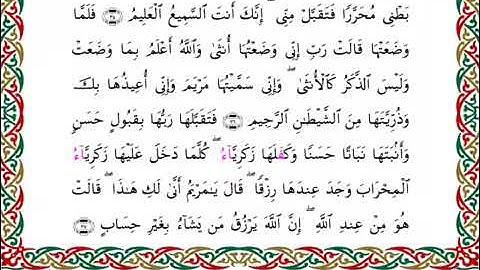 بَطْنِى مُحَرَّرًا فَتَقَبَّلْ مِنِّىٓ ۖ إِنَّكَ أَنتَ ٱلسَّمِيعُ ٱلْعَلِيمُ ۝٣٥ فَلَمَّا
وَضَعَتْهَا قَالَتْ رَبِّ إِنِّى وَضَعْتُهَآ أُنثَىٰ وَٱللَّهُ أَعْلَمُ بِمَا وَضَعَتْ
وَلَيْسَ ٱلذَّكَرُ كَٱلْأُنثَىٰ ۖ وَإِنِّى سَمَّيْتُهَا مَرْيَمَ وَإِنِّىٓ أُعِيذُهَا بِكَ
وَذُرِّيَّتَهَا مِنَ ٱلشَّيْطَٰنِ ٱلرَّجِيمِ ۝٣٦ فَتَقَبَّلَهَا رَبُّهَا بِقَبُولٍ حَسَنٍ
وَأَنۢبَتَهَا نَبَاتًا حَسَنًا وَكَفَلَهَا زَكَرِيَّآءُ ۖ كُلَّمَا دَخَلَ عَلَيْهَا زَكَرِيَّآءُ
ٱلْمِحْرَابَ وَجَدَ عِندَهَا رِزْقًا ۖ قَالَ يَٰمَرْيَمُ أَنَّىٰ لَكِ هَٰذَا ۖ قَالَتْ
هُوَ مِنْ عِندِ ٱللَّهِ ۖ إِنَّ ٱللَّهَ يَرْزُقُ مَن يَشَآءُ بِغَيْرِ حِسَابٍ ۝٣٧